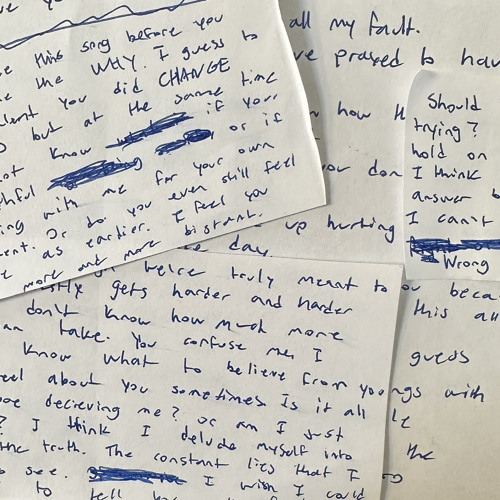 ve yo
e this song before you
the WHY. I guess to
lent you did CHANGE
but at the same time
not know if your
thful or if
ing with me for your own
ent. Or do you even still feel
e as earlier. I feel you
more and more distant.
all my fault.
ve prayed to hav
n how th
your don
up hurting
e day.
Should
trying?
hold on
I think
answer b
I can't
Wrong
truly meant to
stly gets harder and harder
don't know how much more
an take. You confuse me, I
know what to believe from yo
eel about you sometimes. Is it all
you decieving me? Or am I just
? I think I delude myself into
the truth. The constant lies that I
o see. I wish I could
to tell
ou beca
this all
guess
ngs with
the